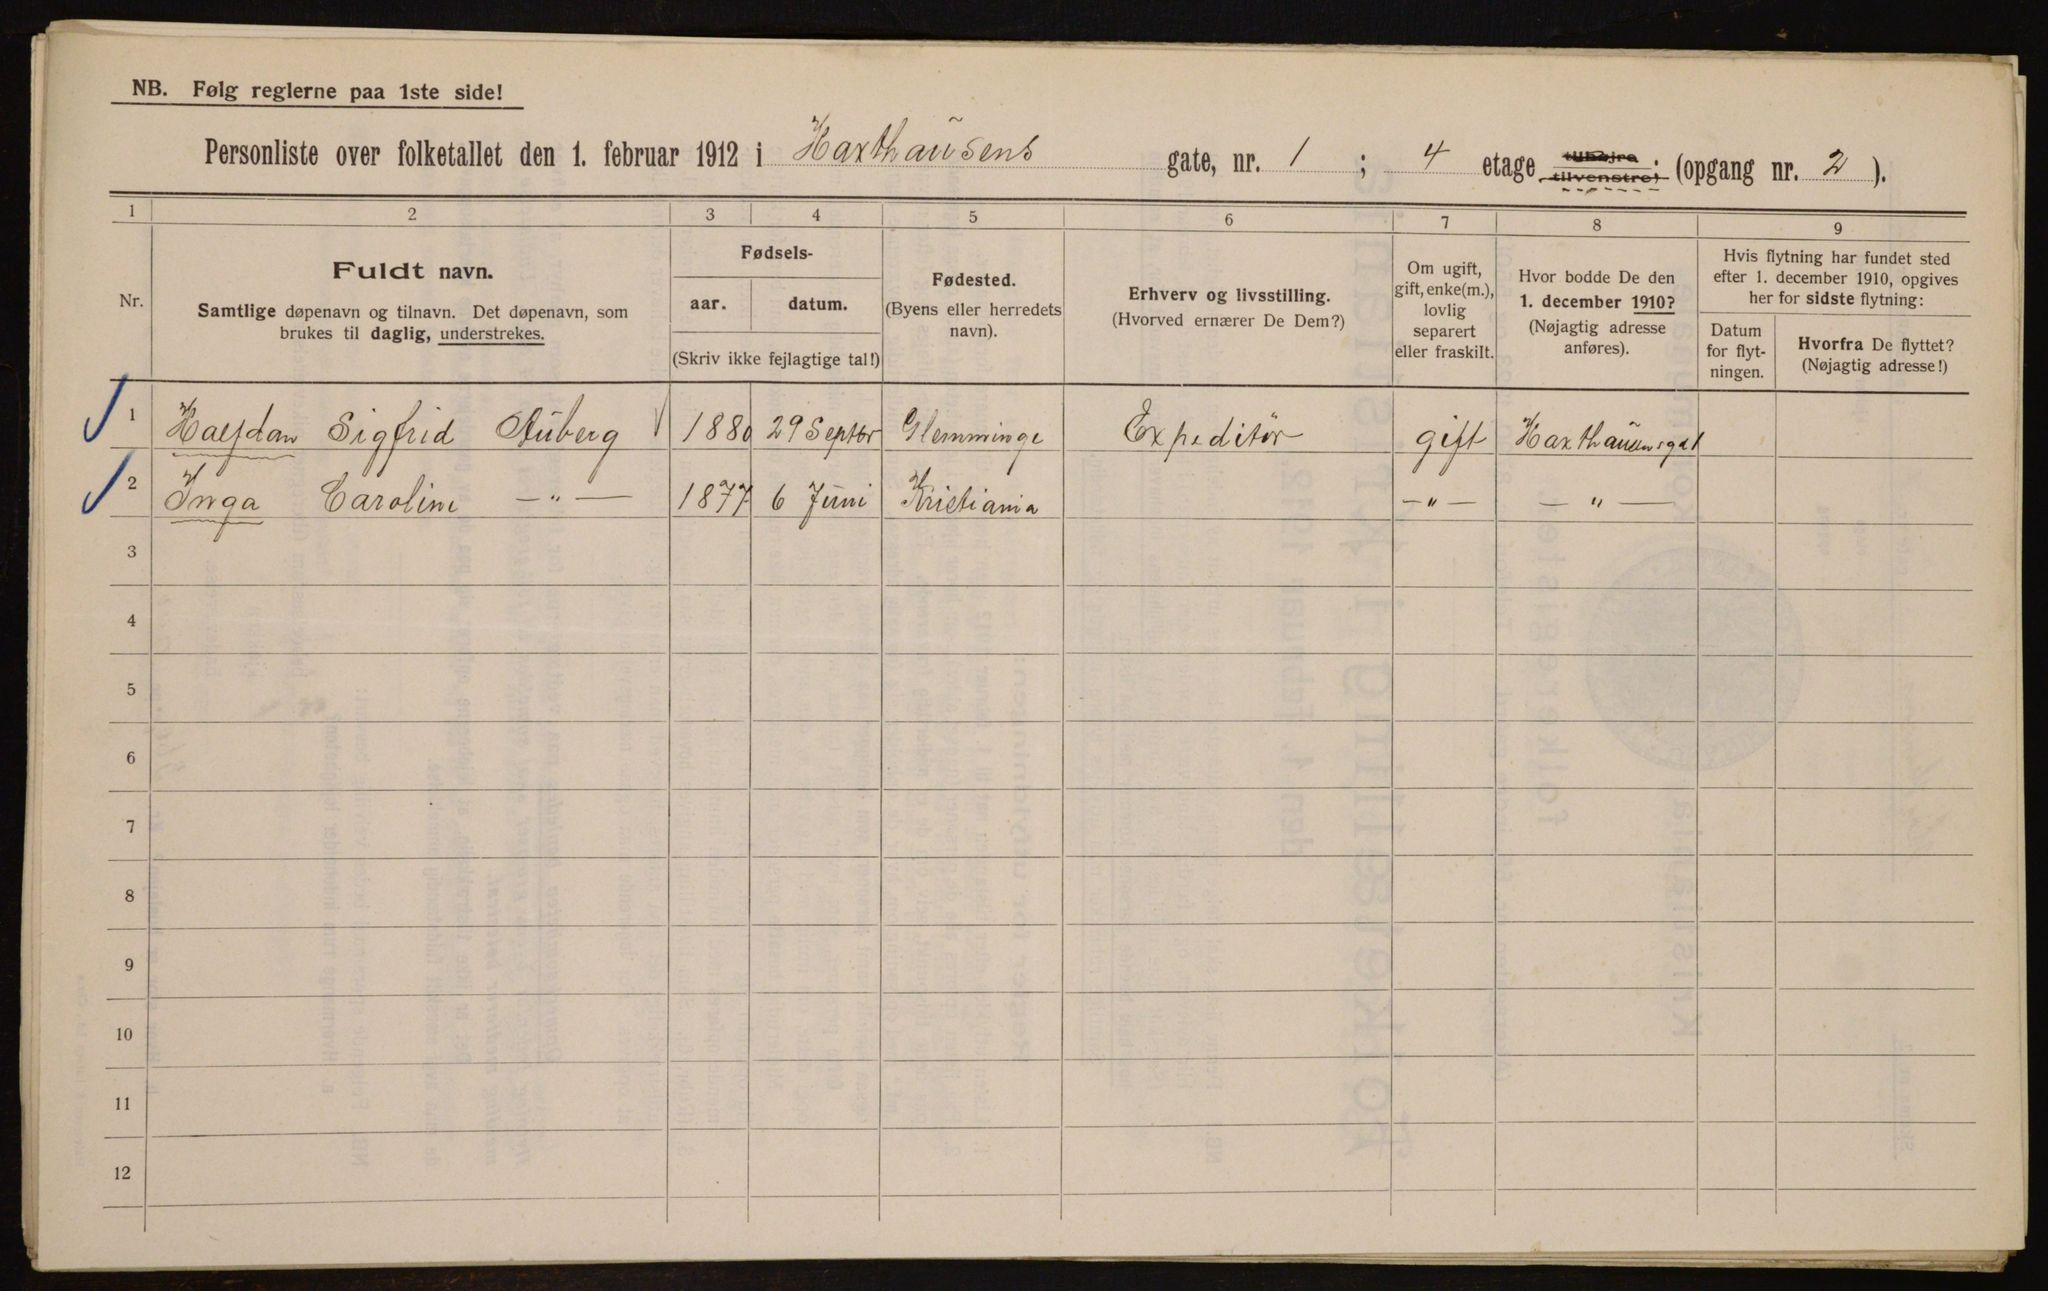 NB. Følg reglerne paa 1ste side!
Personliste over folketallet den 1. februar 1912 i Haxthausens gate, nr. 1 ; 4 etage tilhøjre tilvenstre; (opgang nr. 2 ).
1 2 3 4 5 6 7 8 9
Nr.
Fuldt navn.
Samtlige døpenavn og tilnavn. Det døpenavn, som
brukes til daglig, understrekes.
Fødsels-
aar. datum.
(Skriv ikke fejlagtige tal!)
Fødested.
(Byens eller herredets
navn).
Erhverv og livsstilling.
(Hvorved ernærer De Dem?)
Om ugift,
gift, enke(m.),
lovlig
separert
eller fraskilt.
Hvor bodde De den
1. december 1910?
(Nøjagtig adresse
anføres).
Hvis flytning har fundet sted
efter 1. december 1910, opgives
her for sidste flytning:
Datum
for flyt-
ningen.
Hvorfra De flyttet?
(Nøjagtig adresse!)
1 Halfdan Sigfrid 1880 29 Septbr Glemminge Expeditør gift Haxthausensgt 1
2 Inga Caroline —„— 1877 6 Juni Kristiania —„— —„—
3
4
5
6
7
8
9
10
11
12